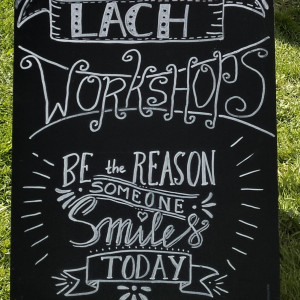 LACH
WORKSHOPS
BE the REASON
SOMEONE
Smiles
TODAY